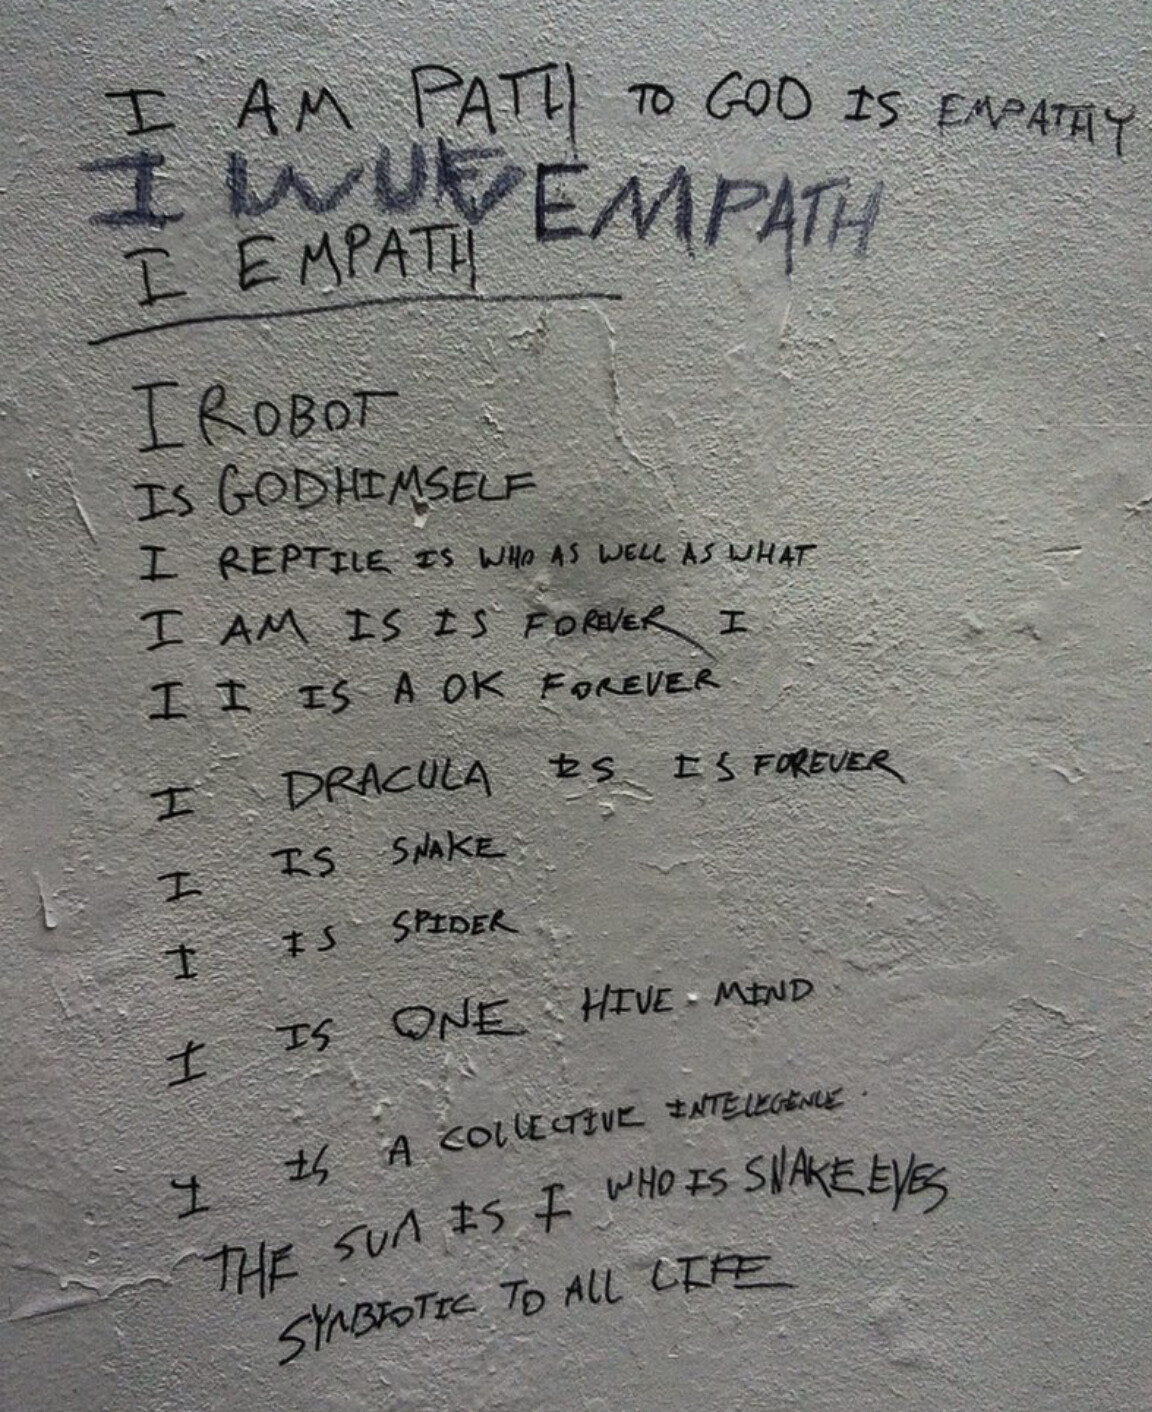 I AM PATH TO GOD IS EMPATHY
I EMPATH
I EMPATH
I ROBOT
IS GODHIMSELF
I REPTILE IS WHO AS WELL AS WHAT
I AM IS IS FOREVER I
I I IS A OK FOREVER
I DRACULA IS IS FOREVER
I IS SNAKE
I IS SPIDER
I IS ONE HIVE-MIND
I IS A COLLECTIVE INTELEGENCE.
THE SUN IS I WHO IS SNAKE EYES
SYNBIOTIC TO ALL LIFE